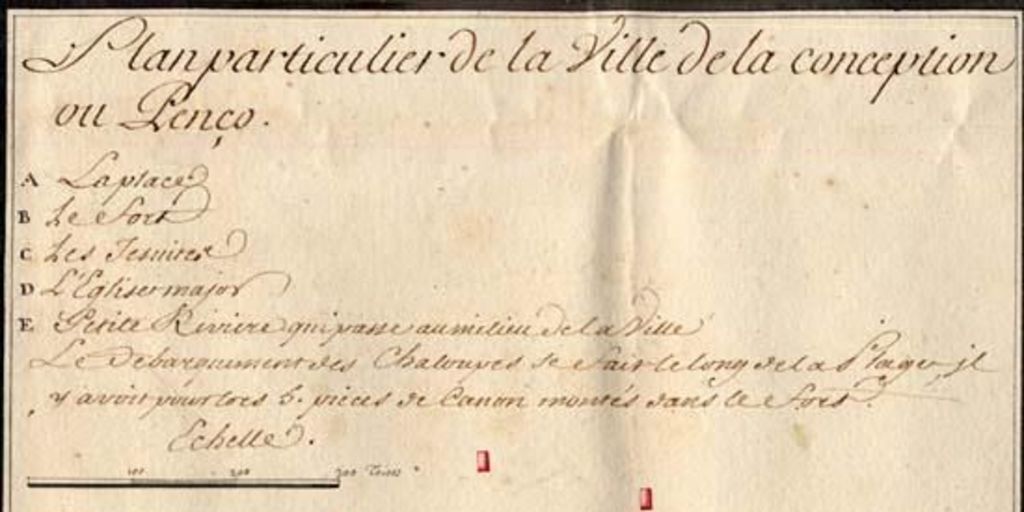 Plan particulier de la Ville de la conception
ou Penço.
A La place
B Le Fort
C Les Jesuites
D L'Eglise major
E Petite Riviere qui passe au milieu de la Ville
Le Debarquement des Chaloupes se fait le long de la Plage, il
y avoit pour lors 5. pieces de Canon montés dans le Fort.
Echelle.
100 200 300 Toises